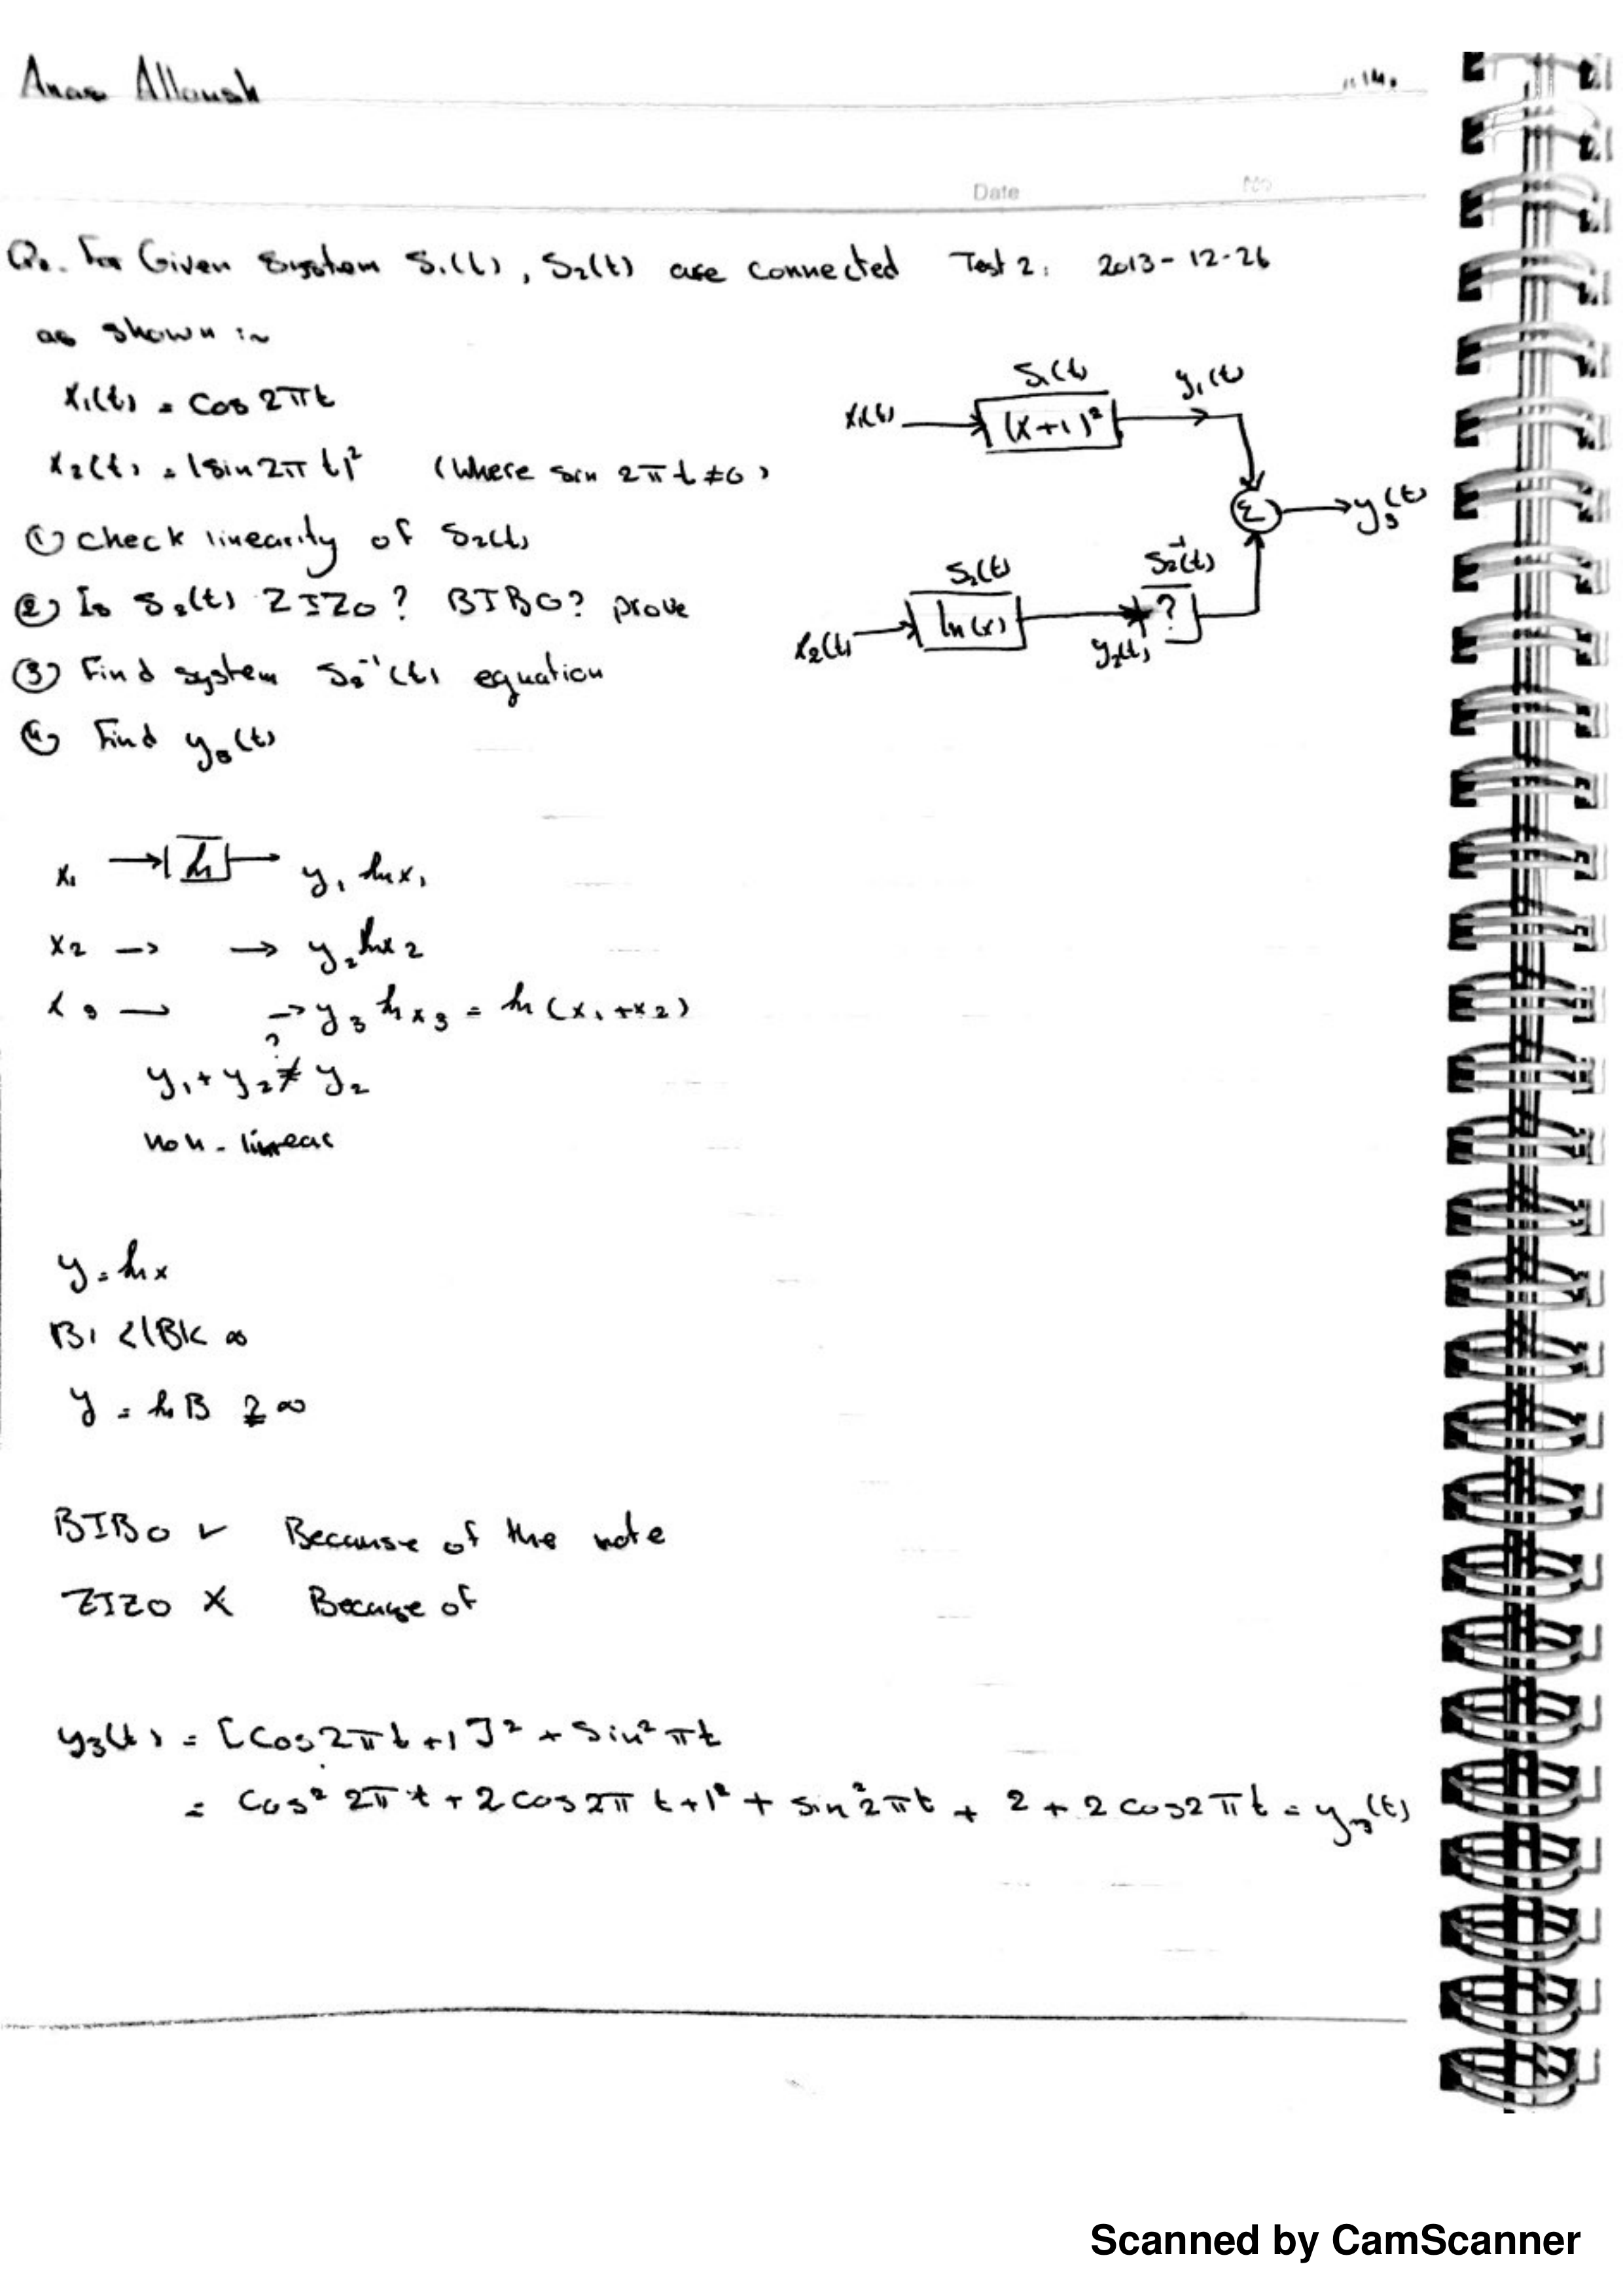 Anas Alloush
Date No
Q. For Given System S₁(t), S₂(t) are connected Test 2: 2013-12-26
as shown in
x₁(t) = cos 2πt
x₂(t) = |sin 2πt|² (where sin 2πt ≠ 0)
① check linearity of S₂(t)
② Is S₂(t) ZIZO? BIBO? prove
③ Find system S₂⁻¹(t) equation
④ Find y₃(t)
x₁(t) S₁(t) (x+1)² y₁(t)
Σ y₃(t)
x₂(t) S₂(t) ln(x) y₂(t) S₂⁻¹(t) ?
x₁ → ln → y₁ ln x₁
x₂ → → y₂ ln x₂
x₃ → → y₃ ln x₃ = ln (x₁+x₂)
?
y₁ + y₂ ≠ y₂
non-linear
y = ln x
y = ln B ∞
BIBO ✓ Because of the note
ZIZO ✗ Because of
y₃(t) = [cos 2πt + 1]² + sin² πt
= cos² 2πt + 2 cos 2π t + 1² + sin² 2πt + 2 + 2 cos 2πt = y₃(t)
Scanned by CamScanner